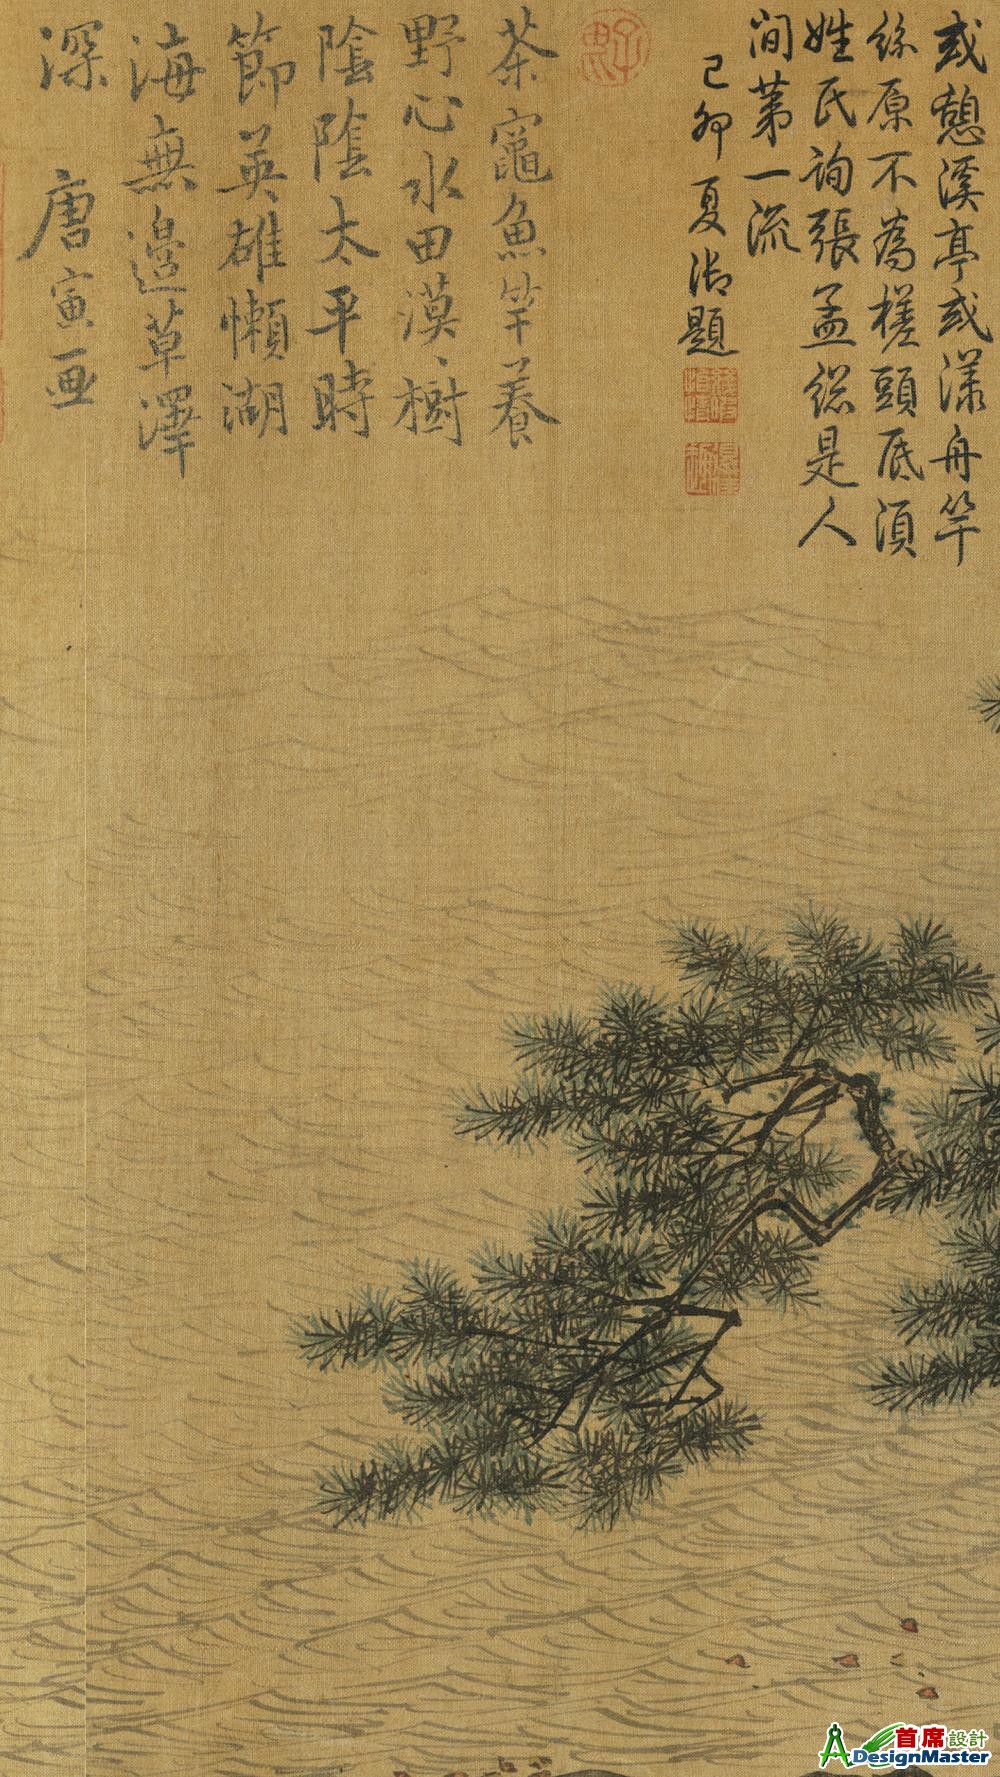 或憩溪亭或漾舟竿
絲原不為槎頭底須
姓氏詢張孟總是人
間第一流
己卯夏御題
茶竈魚竿養
野心水田漠漠樹
陰陰太平時
節英雄懶湖
海無邊草澤
深
唐寅画
首席設計
DesignMaster